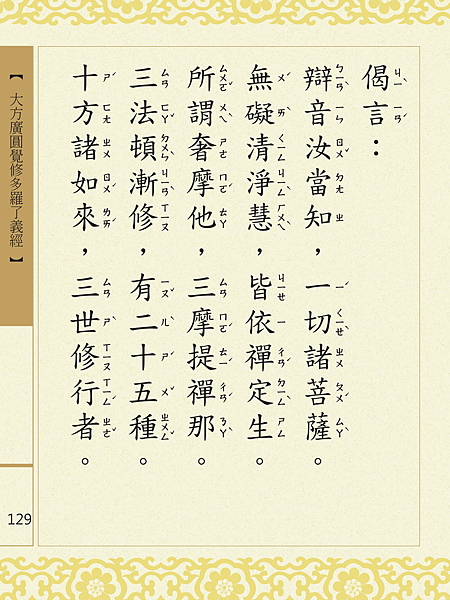 偈言：
辯音汝當知，一切諸菩薩。
無礙清淨慧，皆依禪定生。
所謂奢摩他，三摩提禪那。
三法頓漸修，有二十五種。
十方諸如來，三世修行者。
【大方廣圓覺修多羅了義經】
129